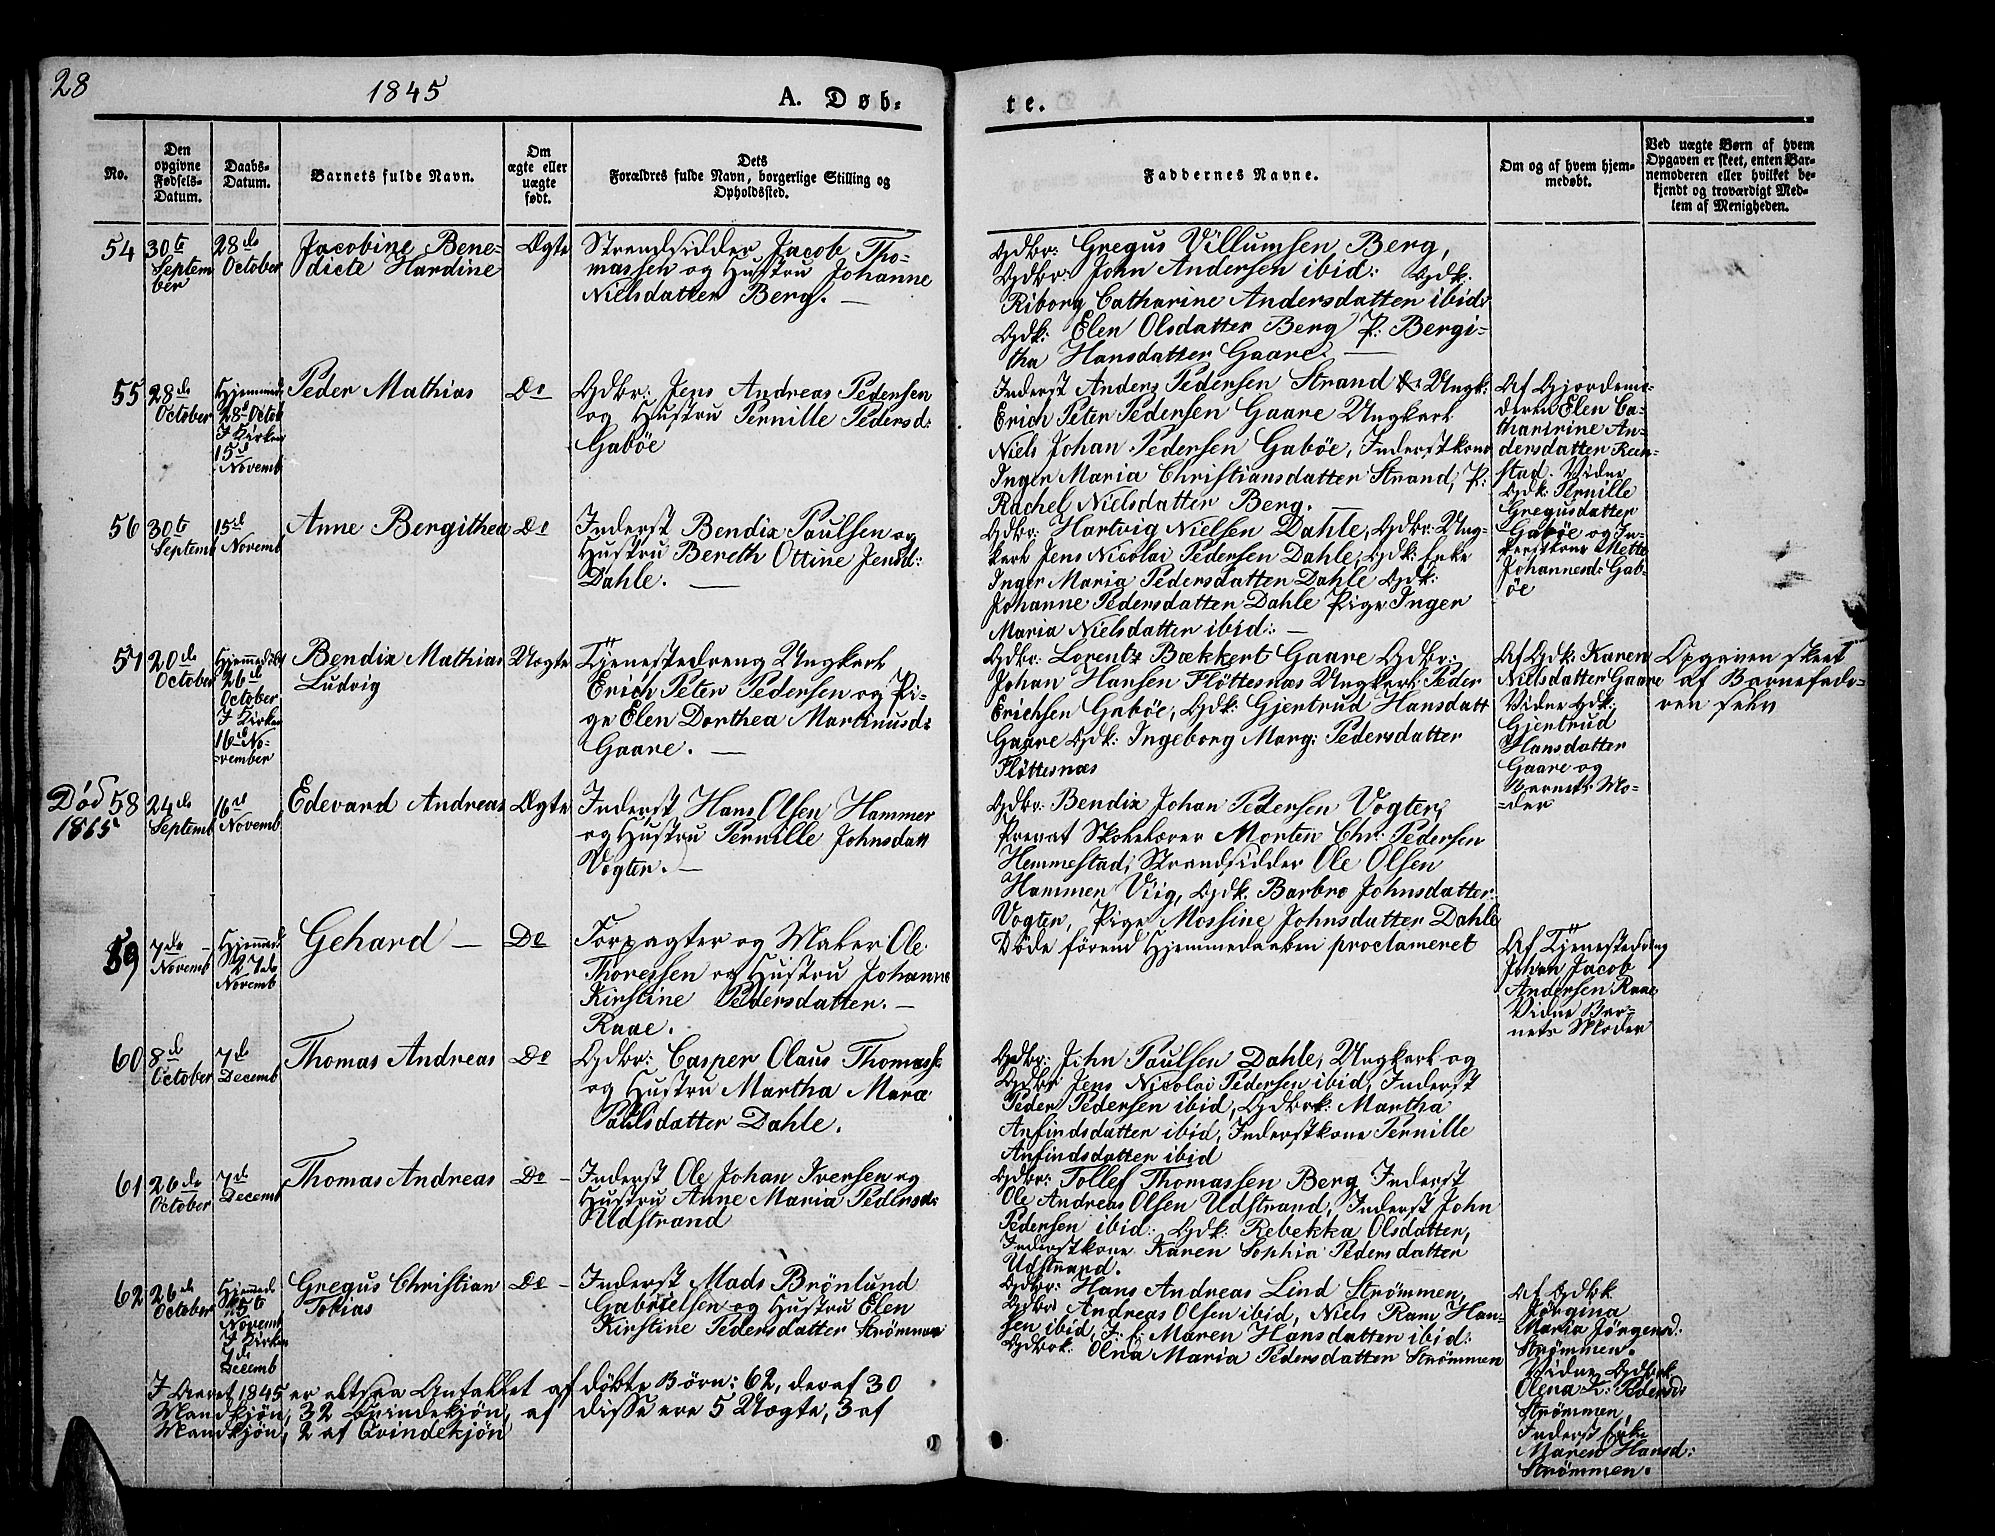 28
1845
A. Døb-
te.
No.
Den
opgivne
Fødsels-
Datum.
Daabs-
Datum.
Barnets fulde Navn.
Om
ægte eller
uægte
født.
Dets
Forældres fulde Navn, borgerlige Stilling og
Opholdssted.
Faddernes Navne.
Om og af hvem hjem-
medøbt.
Ved uægte Børn af hvem
Opgaven er skeet, enten Bar-
nemoderen eller hvilket be-
kjendt og troværdigt Med-
lem af Menigheden.
54
30te
Septem
ber
28de
October
Jacobine Bene-
dicte Hardine
Ægte
Strandsidder Jacob Tho-
massen og Hustru Johanne
Nielsdatter Berg. —
Gdbr: Gregus Villumsen Berg,
Gdbr: John Andersen ibid: Gdk:
Riborg Catharine Andersdatter ibid:
Gdk: Elen Olsdatter Berg P: Bergi-
tha Hansdatter Gaare. —
55
28de
October
Hjemmed
28d Octob
I Kirken
15d
Novemb
Peder Mathias
Do
Gdbr: Jens Andreas Pedersen
og Hustru Pernille Pedersd:
Gabøe
Inderst Anders Pedersen Strand Ungk:
Erich Peter Pedersen Gaare Ungkarl
Niels Johan Pedersen Gabøe, Inderstkone
Inger Maria Christiansdatter Strand, P:
Rachel Nielsdatter Berg. —
Af Gjordemo-
deren Elen Ca-
tharirine An-
dersdatter Ren-
stad. Vidner
Gdk: Pernille
Gregusdatter
Gabøe og In-
derstkone Mette
Johannesd: Gab-
öe
56
30te
Septemb
15d
Novemb
Anne Bergithea
Do
Inderst Bendix Paulsen og
Hustru Bereth Ottine Jensd:
Dahle. —
Gdbr: Hartvig Nielsen Dahle, Gdbr: Ung-
karl Jens Nicolai Pedersen Dahle, Gdk: Enke
Inger Maria Pedersdatter Dahle Gdk:
Johanne Pedersdatter Dahle Pige Inger
Maria Nielsdatter ibid: —
57
20de
October
Hjemmedøbt
26d
October
I Kirken
16d No-
vember
Bendix Mathias
Ludvig
Uægte
Tjenestedreng Ungkarl
Erich Peter Pedersen og Pi-
ge Elen Dorthea Martinusd:
Gaare. —
Gdbr: Lorentz Bækkert Gaare Gdbr:
Johan Hansen Fløttesnæs Ungkarl Peder
Erichsen Gabøe, Gdk: Gjertrud Hansdatt
Gaare Gdk: Ingeborg Marg: Pedersdatter
Fløttesnæs
Af Gdk: Karen
Nielsdatter Gaare
Vidner Gdk:
Gjertrud
Hansdatter
Gaare og
Barnets Mo-
-der
Opgaven skeet
af Barnefade-
ren selv
Död
1865
58
24de
Septemb
16d
Novemb
Edevard Andreas
Ægte
Inderst Hans Olsen Hammer
og Hustru Pernille Johnsdatt
Vogter. —
Gdbr: Bendix Johan Pedersen Vogter,
Privat Skolelærer Morten Chr: Pedersen
Hemmestad, Strandsidder Ole Olsen
Hammer Viig, Gdk: Barbro Johnsdatter
Vogter, Pige Mossine Johnsdatter Dahle
59
7de
Novemb
Hjemmed
27de
Novemb
Gehard —
Do
Forpagter og Maler Ole
Thoressen og Hustru Johanne
Kirstine Pedersdatter. —
Raae.
Døde förend Hjemmedaaben proclameret
Af Tjenestedreng
Johan Jacob
Andersen Raae
Vidne Bar-
nets Moder
60
8de
October
7de
Decemb
Thomas Andreas
Do
Gdbr: Casper Olaus Thomass:
og Hustru Martha Mara
Palsdatter Dahle.
Gdbr: John Paulsen Dahle, Ungkarl og
Gdbr: Jens Nicolai Pedersen ibid, Inderst
Peder Pedersen ibid, Gdbrk: Martha
Anfindsdatter ibid, Inderstkone Pernille
Anfindsdatter ibid
61
26de
October
7de
Decemb
Thomas Andreas
Do —
Inderst Ole Johan Iversen og
Hustru Anne Maria Pedersd:
Udstrand
Gdbr: Tollef Thomassen Berg Inderst
Ole Andreas Olsen Udstrand, Inderst John
Pedersen ibid: Gdk: Rebekka Olsdatter,
Inderstkone Karen Sophia Pedersdatter
Udstrand.
62
26de
October
Hjemmed
25te
Novemb
I Kirken
7de
Decemb
Gregus Christian
Tobias
Do —
Inderst Mads Brönlund
Gabrielsen og Hustru Elen
Kirstine Pedersdatter Strömmen
Gdbr: Hans Andreas Lind Strömmen,
Gdbr: Andreas Olsen ibid, Niels Ram Han-
sen ibid, I: f: Maren Hansdatter ibid:
Gdbrk: Olna Maria Pedersdatter Strömmen
Af Gdbk
Jörgina
Maria Jörgensd:
Strömmen.
Vidner Gdbrk
Olena K: Pedersd:
Strömmen,
Inderst Enke
Maren Hansd:
Strömmen.
I Aaret 1845 er altsaa Antallet af döbte Børn: 62, deraf 30
Mandkjön, 32 Qvindekjön, af disse ere 5 Uægte, 3 af
Mandkjön, 2 af Qvindekjön